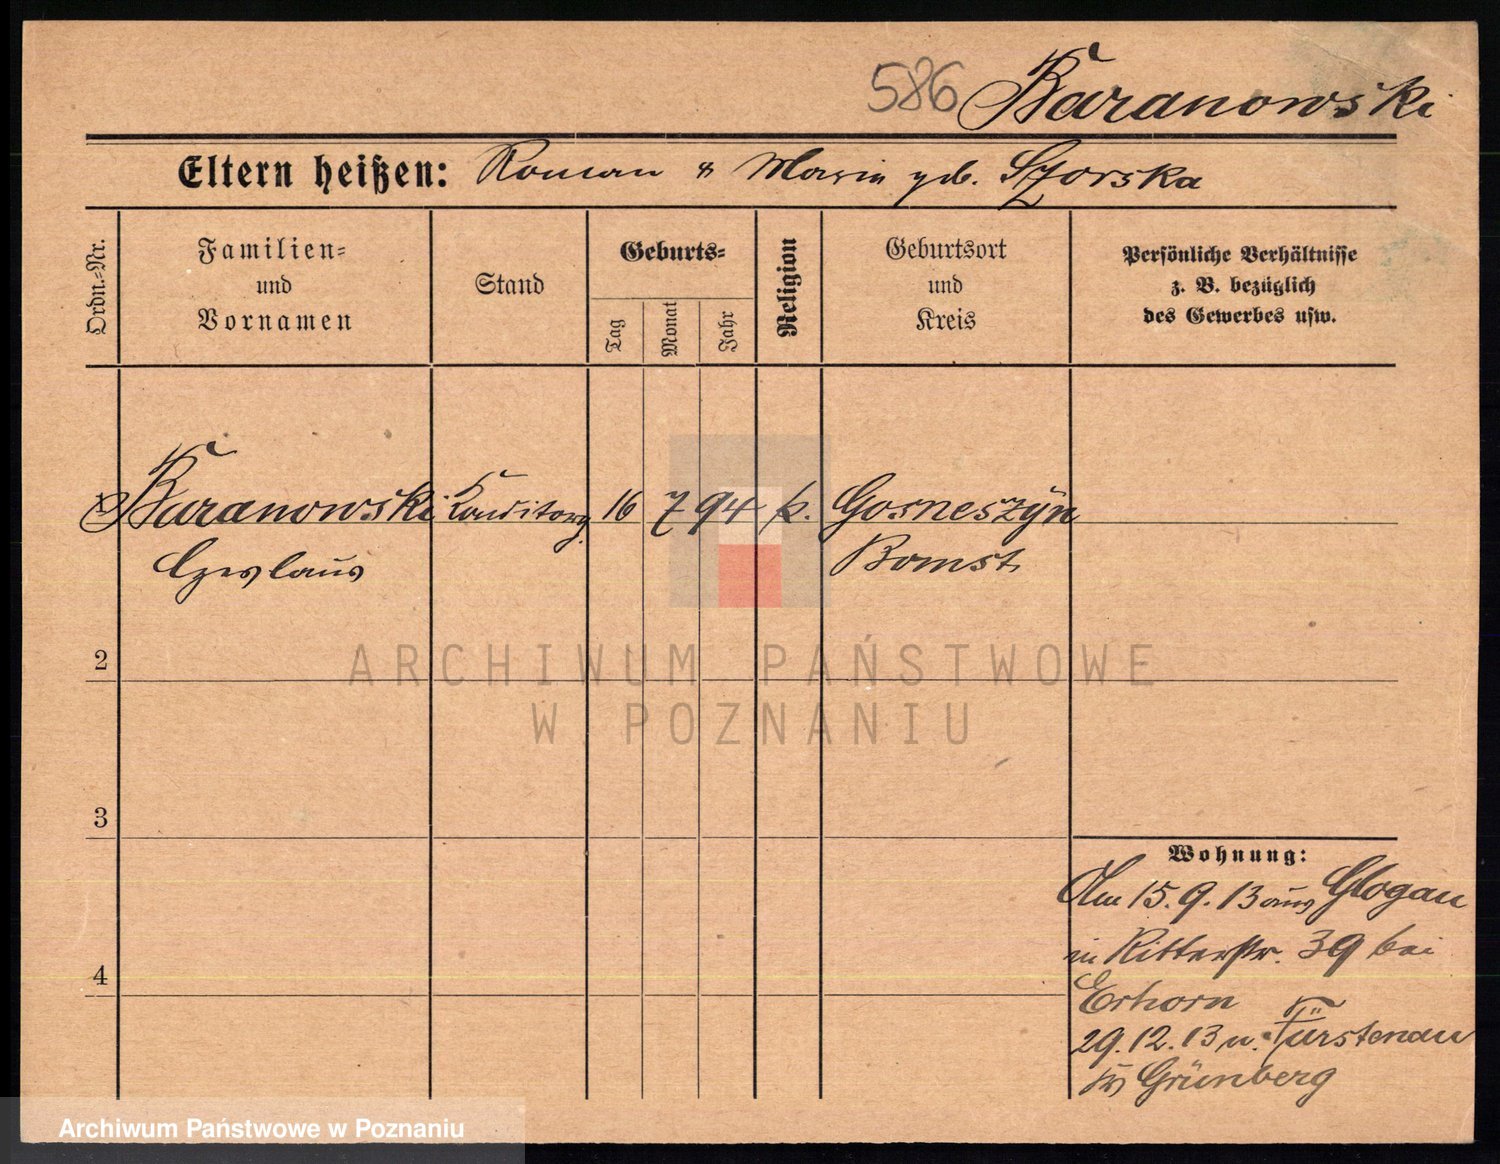 586 Baranowski
Eltern heißen: Roman & Maria geb. Szorska
Ordn.-Nr.
Familien-
und
Vornamen
Stand
Geburts-
Tag
Monat
Jahr
Religion
Geburtsort
und
Kreis
Persönliche Verhältnisse
z. B. bezüglich
des Gewerbes usw.
1 Baranowski Konditorg. 16 7 94 k. Gosneszÿn
Czeslaus Bomst
2
3
4
Wohnung:
Am 15.9.13 aus Glogau
in Ritterstr. 39 bei
Erhorn
29.12.13 n. Fürstenau
Grünberg
ARCHIWUM PAŃSTWOWE
W POZNANIU
Archiwum Państwowe w Poznaniu